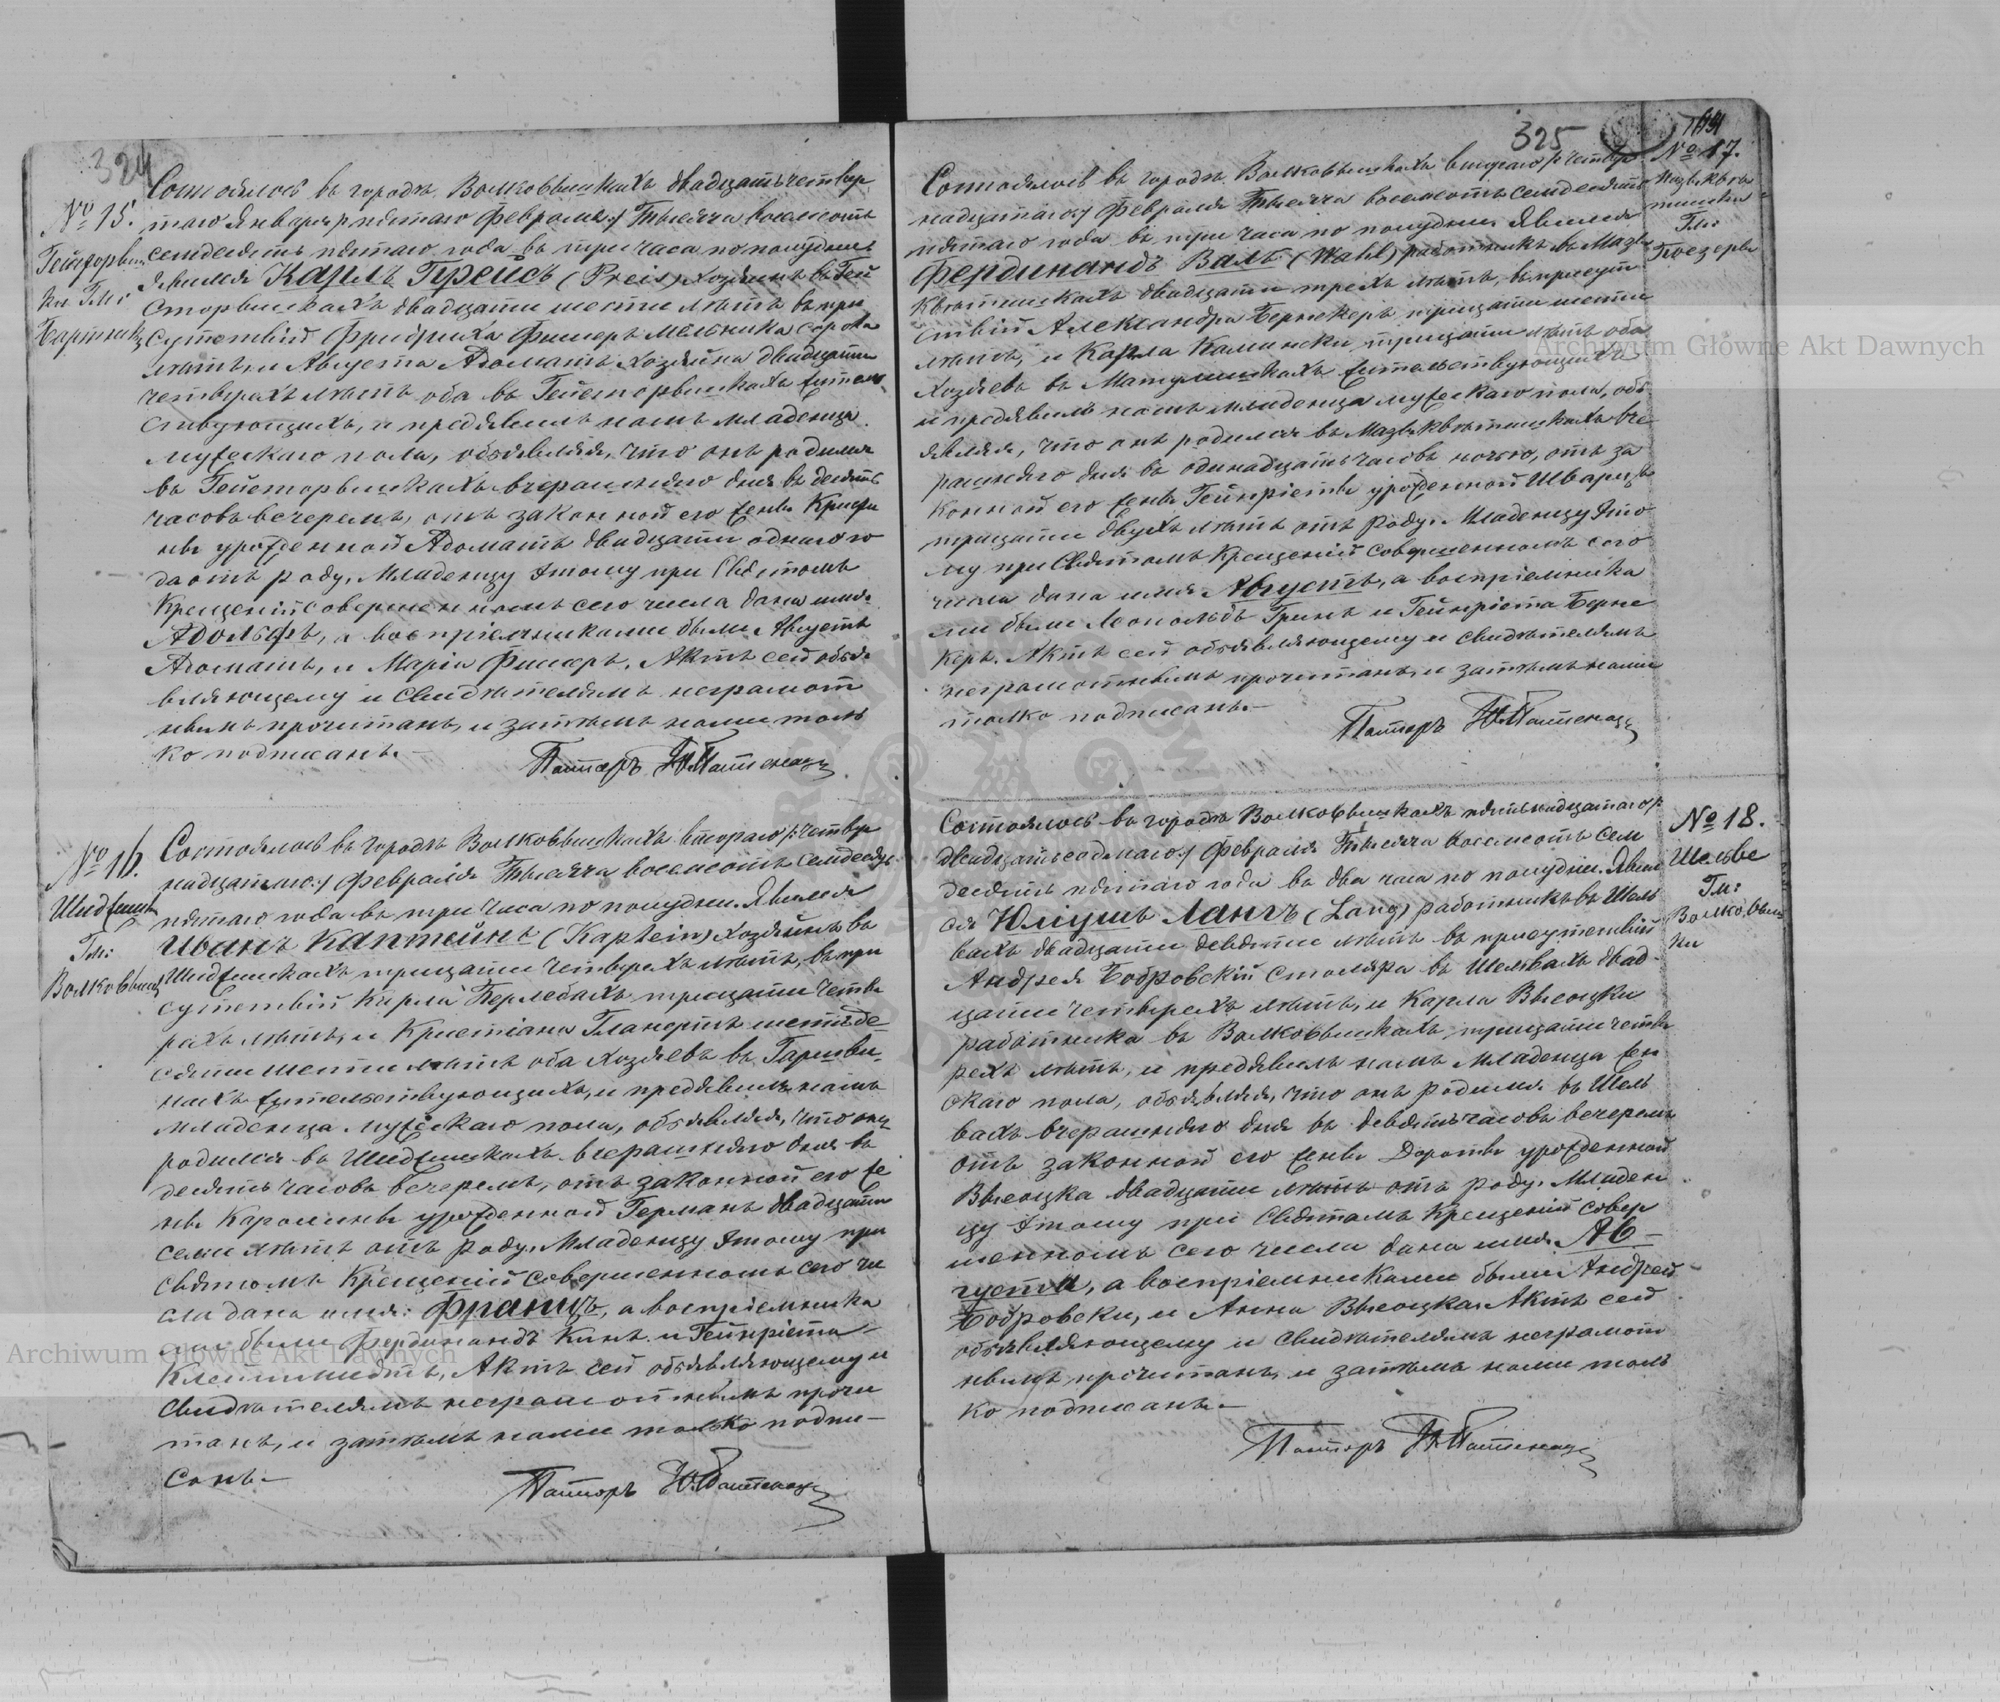 324
№ 15.
Гейсторвиш
ки Гм:
Бартники
Состоялось въ городѣ Волковышкахъ двадцать четвер
таго Января /: пятаго Февраля :/ Тысяча восемьсотъ
семдесять пятаго года въ три часа по полудни
Явился Карлъ Прейсъ (Preis) хозяинъ въ Гей
сторвишкахъ двадцати шести лѣтъ въ при
сутствіи Фридриха Фишеръ мельника сорока
лѣтъ, и Августа Адоматъ хозяина двадцати
четырехъ лѣтъ оба въ Гейсторвишкахъ житель
ствующихъ, и предъявилъ намъ младенца
мужескаго пола, объявляя, что онъ родился
въ Гейсторвишкахъ вчерашняго дня въ десять
часовъ вечеромъ, отъ законной его жены Кристи
ны урожденной Адоматъ двадцати одного го
да отъ роду. Младенцу этому при Святомъ
Крещеніи совершенномъ сего числа дано имя
Адольфъ, а воспріемниками были Августъ
Адоматъ, и Марія Фишеръ. Актъ сей объя
вляющему и свидѣтелямъ неграмот
нымъ прочитанъ, и затѣмъ нами толь
ко подписанъ.—
Пасторъ
№ 16.
Шиджишк
Гм:
Волковышки
Состоялось въ городѣ Волковышкахъ втораго /: четыр
надцатаго :/ Февраля Тысяча восемьсотъ семдесять
пятаго года въ три часа по полудни. Явился
Иванъ Каптейнъ (Kaptein) хозяинъ въ
Шиджишкахъ тридцати четырехъ лѣтъ, въ при
сутствіи Карла Перлебахъ тридцати четы
рехъ лѣтъ, и Кристіана Гланертъ шестьде
сяти шести лѣтъ оба хозяевъ въ
нахъ жительствующихъ, и предъявилъ намъ
младенца мужескаго пола, объявляя, что онъ
родился въ Шиджишкахъ вчерашняго дня въ
десять часовъ вечеромъ, отъ законной его же
ны Каролины урожденной Германъ двадцати
семи лѣтъ отъ роду. Младенцу этому при
святомъ Крещеніи совершенномъ сего чи
сла дано имя: Францъ, а воспріемника
ми были Фердинандъ Кинъ и Гейнріета
Клейншмидтъ. Актъ сей объявляющему и
свидѣтелямъ неграмотнымъ прочи
танъ, и затѣмъ нами только подпи—
санъ.—
Пасторъ
325
№ 17.
Мазъ-Квѣ
тишки
Гм:
Поезеры
Состоялось въ городѣ Волковышкахъ втораго /: четыр
надцатаго :/ Февраля Тысяча восемьсотъ семдесять
пятаго года въ три часа по полудни. Явился
Фердинандъ Валь (Wahl) работникъ въ Мазъ
Квѣтишкахъ двадцати трехъ лѣтъ, въ присут
ствіи Александра Бернекеръ тридцати шести
лѣтъ, и Карла Калински тридцати лѣтъ оба
хозяевъ въ Матулишкахъ жительствующихъ
и предъявилъ намъ младенца мужескаго пола, объ
являя, что онъ родился въ Мазъ Квѣтишкахъ вче
рашняго дня въ одинадцать часовъ ночью, отъ за
конной его жены Гейнріеты урожденной Шварцъ
тридцати двухъ лѣтъ отъ роду. Младенцу это
му при Святомъ Крещеніи совершенномъ сего
числа дано имя Августъ, а воспріемника
ми были Леопольдъ Гринъ и Гейнріета Берне
керъ. Актъ сей объявляющему и свидѣтелямъ
неграмотнымъ прочитанъ, и затѣмъ нами
толко подписанъ.—
Пасторъ
№ 18.
Шельве
Гм:
Волковыш
ки
Состоялось въ городѣ Волковышкахъ пятьнадцатаго /:
двадцать седмаго :/ Февраля Тысяча восемьсотъ сем
десять пятаго года въ два часа по полудни. Явил
ся Юліушъ Лангъ (Lang) работникъ въ Шель
вахъ двадцати девяти лѣтъ въ присутствіи
Андрея Бобровскій столяра въ Шельвахъ двад
цати четырехъ лѣтъ, и Карла Высоцки
работника въ Волковышкахъ, тридцати четы
рехъ лѣтъ, и предъявилъ намъ младенца жен
скаго пола, объявляя, что онъ родился въ Шель
вахъ вчерашняго дня въ девять часовъ вечеромъ
отъ законной его жены Дороты урожденной
Высоцка двадцати лѣтъ отъ роду. Младен
цу этому при Святомъ Крещеніи совер
шенномъ сего числа дано имя Ав—
густа, а воспріемниками были Андрей
Бобровски, и Анна Высоцка. Актъ сей
объявляющему и свидѣтелямъ неграмот
нымъ прочитанъ, и затѣмъ нами толь
ко подписанъ.—
Пасторъ
Archiwum Główne Akt Dawnych
Archiwum Główne Akt Dawnych